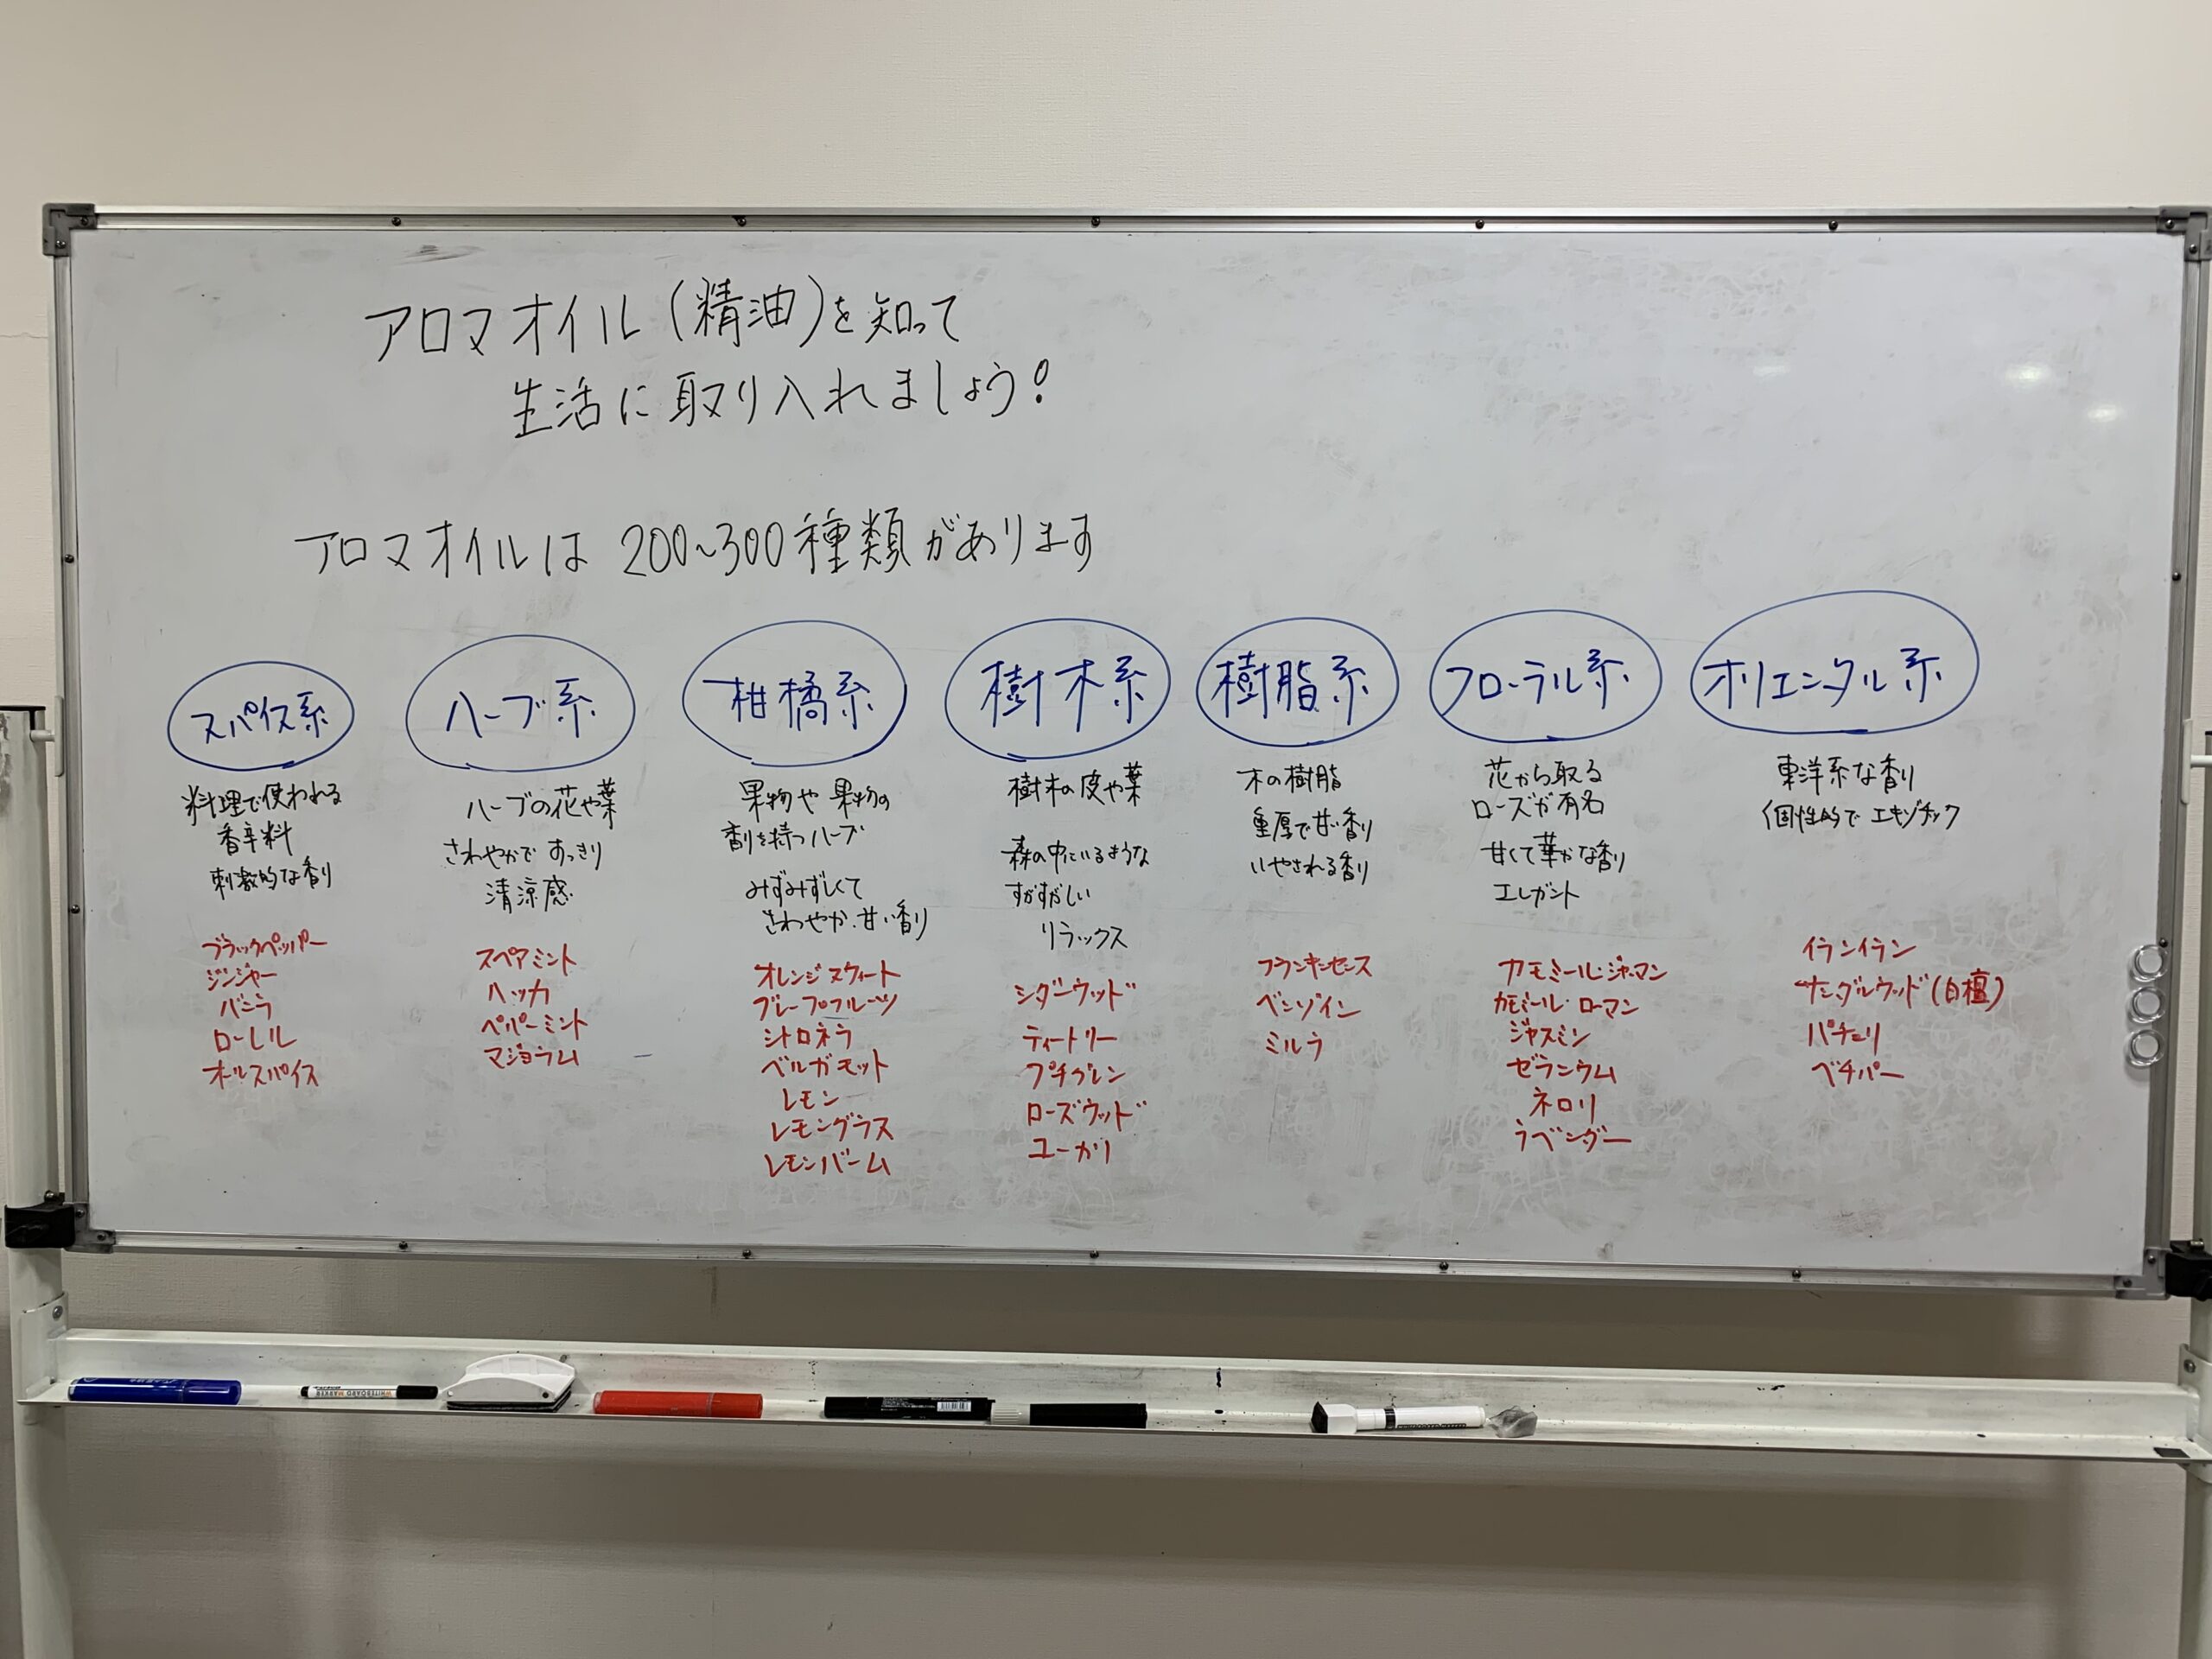 アロマオイル(精油)を知って
生活に取り入れましょう!
アロマオイルは 200~300種類があります
スパイス系
料理で使われる
香辛料
刺激的な香り
ブラックペッパー
ジンジャー
バニラ
ローレル
オールスパイス
ハーブ系
ハーブの花や葉
さわやかで すっきり
清涼感
スペアミント
ハッカ
ペパーミント
マジョラム
柑橘系
果物や 果物の
香りを持つハーブ
みずみずしくて
さわやか、甘い香り
オレンジスウィート
グレープフルーツ
シトロネラ
ベルガモット
レモン
レモングラス
レモンバーム
樹木系
樹木の皮や葉
森の中にいるような
すがすがしい
リラックス
シダーウッド
ティートリー
プチグレン
ローズウッド
ユーカリ
樹脂系
木の樹脂
重厚で甘い香り
いやされる香り
フランキンセンス
ベンゾイン
ミルラ
フローラル系
花から取る
ローズが有名
甘くて華やかな香り
エレガント
カモミール・ジャーマン
カモミール・ローマン
ジャスミン
ゼラニウム
ネロリ
ラベンダー
オリエンタル系
東洋系な香り
個性的で エキゾチック
イランイラン
サンダルウッド(白檀)
パチュリ
ベチバー
WHITEBOARD MARKER